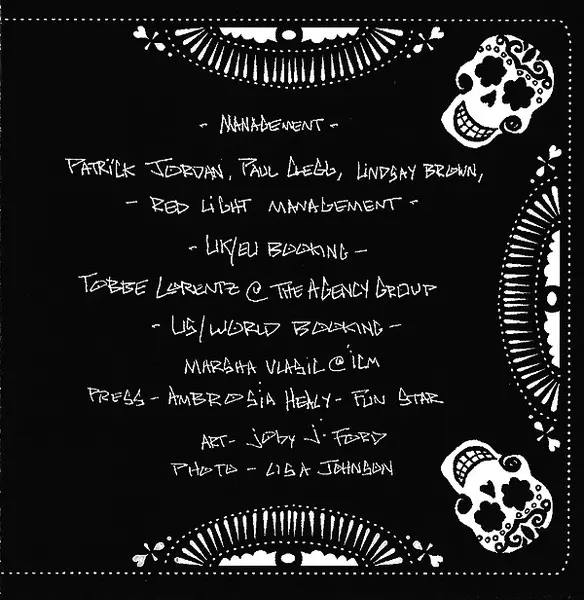 - MANAGEMENT -
PATRICK JORDAN, PAUL CLEGG, LINDSAY BROWN,
- RED LIGHT MANAGEMENT -
- UK/EU BOOKING -
TOBBE LORENTZ @ THE AGENCY GROUP
- US/WORLD BOOKING -
MARSHA VLASIC @ ICM
PRESS - AMBROSIA HEALY - FUN STAR
ART - JOBY J. FORD
PHOTO - LISA JOHNSON